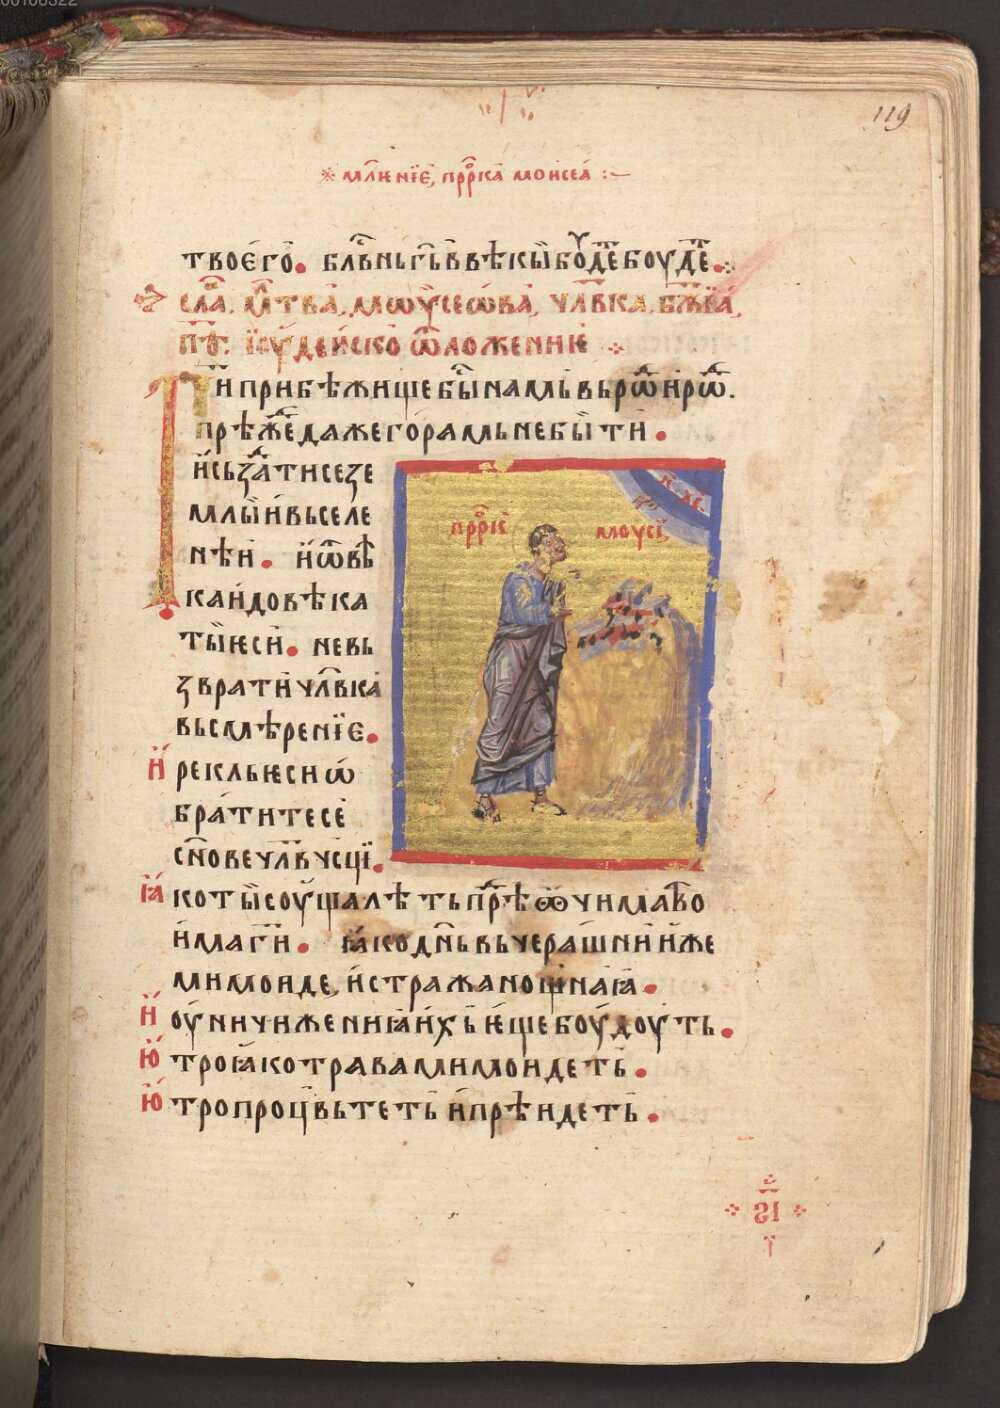 119
млѥнїе, прр҇ка моѵсеа :~
твоего. блвⷭ҇нь гь в вѣкы боуⷣте боуⷣте.
слаⷡ҇. млⷮ҇тва, мѡѵсеѡва, члв҇ка, бж҇їа,
пⷭ҇. їоудеиско ѿложение
Ги прибѣжище быⷭ҇ намь вь рѡⷣ и рѡⷣ.
прѣжⷣе даже горамь не быти.
и сьзⷣати се зе
млы и вьселе
нѣи. и ѿ вѣ
ка и до вѣка
ты ѥси. не вь
зврати члв҇ка
вь смѣренїе.
И рекль ѥси ѡ
братите се
сн҇ове члв҇чсцї.
Ꙗко тысоуща лѣть прѣⷣ ѡчима тво
има ги. ꙗко дн҇ь вьчерашнии иже
мимоиде, и стража нощнаꙗ.
И оуничижениꙗ ихь ѥще боудоуть.
Ю тро ꙗко трава мимоидеть.
Ю тро процвьтеть и прѣидеть.
прр҇кь моуси,
іс хс